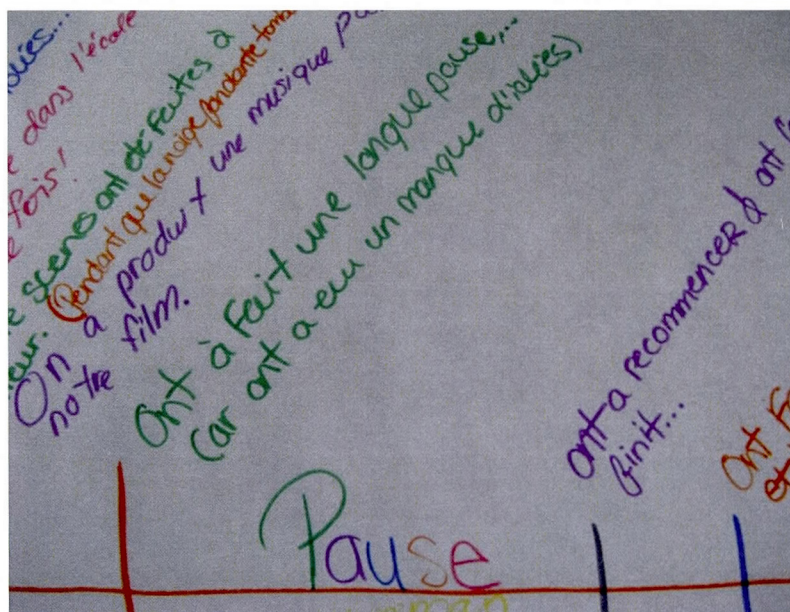 dans l'école
fois!
scènes ont été faites à
(Pendant que la neige
On a produit une musique
notre film.
Ont à fait une longue pause,...
(ar ont a eu un manque d'idées)
ont a recommencer & ont
finit...
Ont
Pause